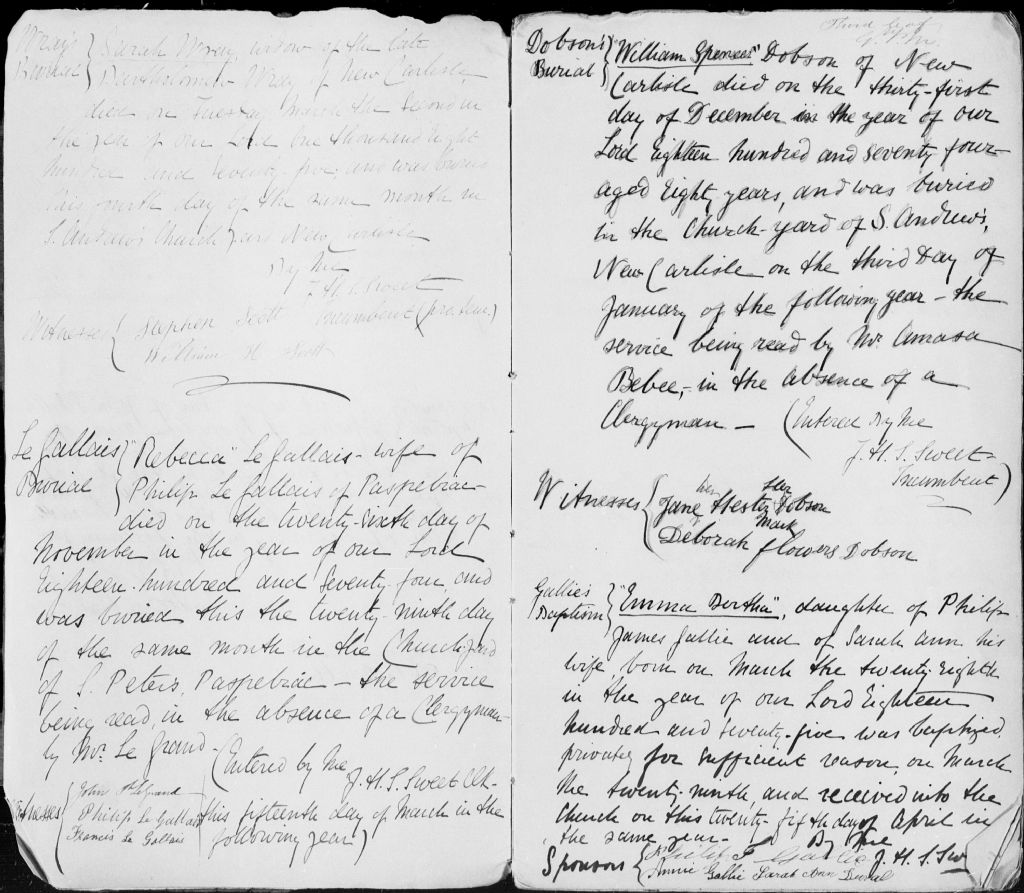 Wray's } Sarah Wray, widow of the late
Burial } Bartholomew Wray of New Carlisle
died on Tuesday March the second in
the year of our Lord one thousand eight
hundred and seventy-five, and was buried
this fourth day of the same month in
S. Andrew's Church yard New Carlisle
By me
J. H. S. Sweet
Incumbent (pro tem.)
Witnesses { Stephen Scott
William H. Scott
Le Gallais } "Rebecca" Le Gallais - wife of
Burial } Philip Le Gallais of Paspebiac -
died on the twenty-sixth day of
November in the year of our Lord
Eighteen-hundred and seventy-four, and
was buried this the twenty-ninth day
of the same month in the Churchyard
of S. Peters, Paspebiac - the service
being read, in the absence of a Clergyman
by Mr. Le Grand - (Entered by me
J. H. S. Sweet
this fifteenth day of March in the
following year)
Witnesses { John Le Grand
Philip Le Gallais
Francis Le Gallais
Third leaf
Dobson's } "William Spencer" Dobson of New
Burial } Carlisle died on the thirty-first
day of December in the year of our
Lord Eighteen hundred and seventy four -
aged Eighty years, and was buried
in the Church-yard of S. Andrew's,
New Carlisle on the third Day of
January of the following year - the
service being read by Mr. Amasa
Bebee, - in the absence of a
Clergyman - (Entered by me
J. H. S. Sweet -
Incumbent)
Witnesses { Jane Hester her Dobson
mark
Deborah Flowers Dobson
Gallie's } "Emma Bertha", daughter of Philip
Baptism } James Gallie and of Sarah Ann his
wife, born on March the twenty-eighth
in the year of our Lord Eighteen
hundred and seventy-five was baptized
privately for sufficient reason, on March
the twenty-ninth, and received into the
Church on this twenty-fifth day of April in
the same year - By me
J. H. S. Sw
Sponsors { Philip J. Gallie
Annie Gallie Sarah Ann Duval